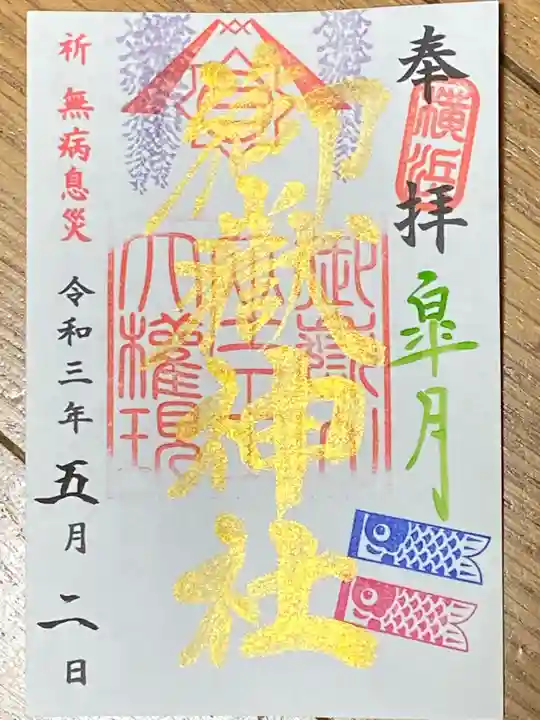 奉拝
横浜
皐月
御嶽神社
大権現
祈 無病息災
令和三年五月二日